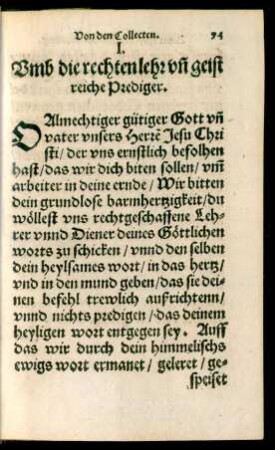 Von den Collecten. 94
I.
Vmb die rechten lehr vñ geist
reiche Prediger.
O Almechtiger gütiger Gott vñ
vater vnsers Herrē Jesu Chri
sti/ der vns ernstlich befolhen
hast/ das wir dich biten sollen/ vm̄
arbeiter in deine ernde/ Wir bitten
dein grundlose barmhertzigkeit/ du
wöllest vns rechtgeschaffene Leh-
rer vnnd Diener deines Göttlichen
worts zu schicken/ vnnd den selben
dein heylsames wort/ in das hertz/
vnd in den mund geben/ das sie dei-
nen befehl trewlich außrichtenn/
vnnd nichts predigen/ das deinem
heyligen wort entgegen sey. Auff
das wir durch dein himmelischs
ewigs wort ermanet/ geleret/ ge-
speiset